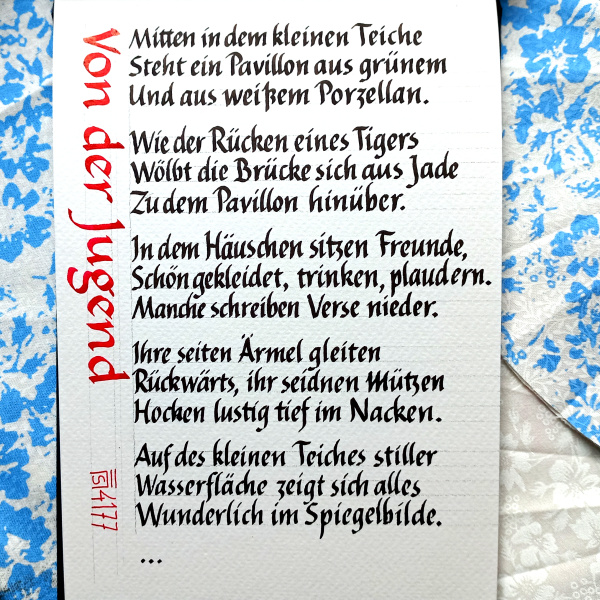 Von der Jugend
Mitten in dem kleinen Teiche
Steht ein Pavillon aus grünem
Und aus weißem Porzellan.
Wie der Rücken eines Tigers
Wölbt die Brücke sich aus Jade
Zu dem Pavillon hinüber.
In dem Häuschen sitzen Freunde,
Schön gekleidet, trinken, plaudern.
Manche schreiben Verse nieder.
Ihre seiten Ärmel gleiten
Rückwärts, ihr seidnen Mützen
Hocken lustig tief im Nacken.
Auf des kleinen Teiches stiller
Wasserfläche zeigt sich alles
Wunderlich im Spiegelbilde.
...